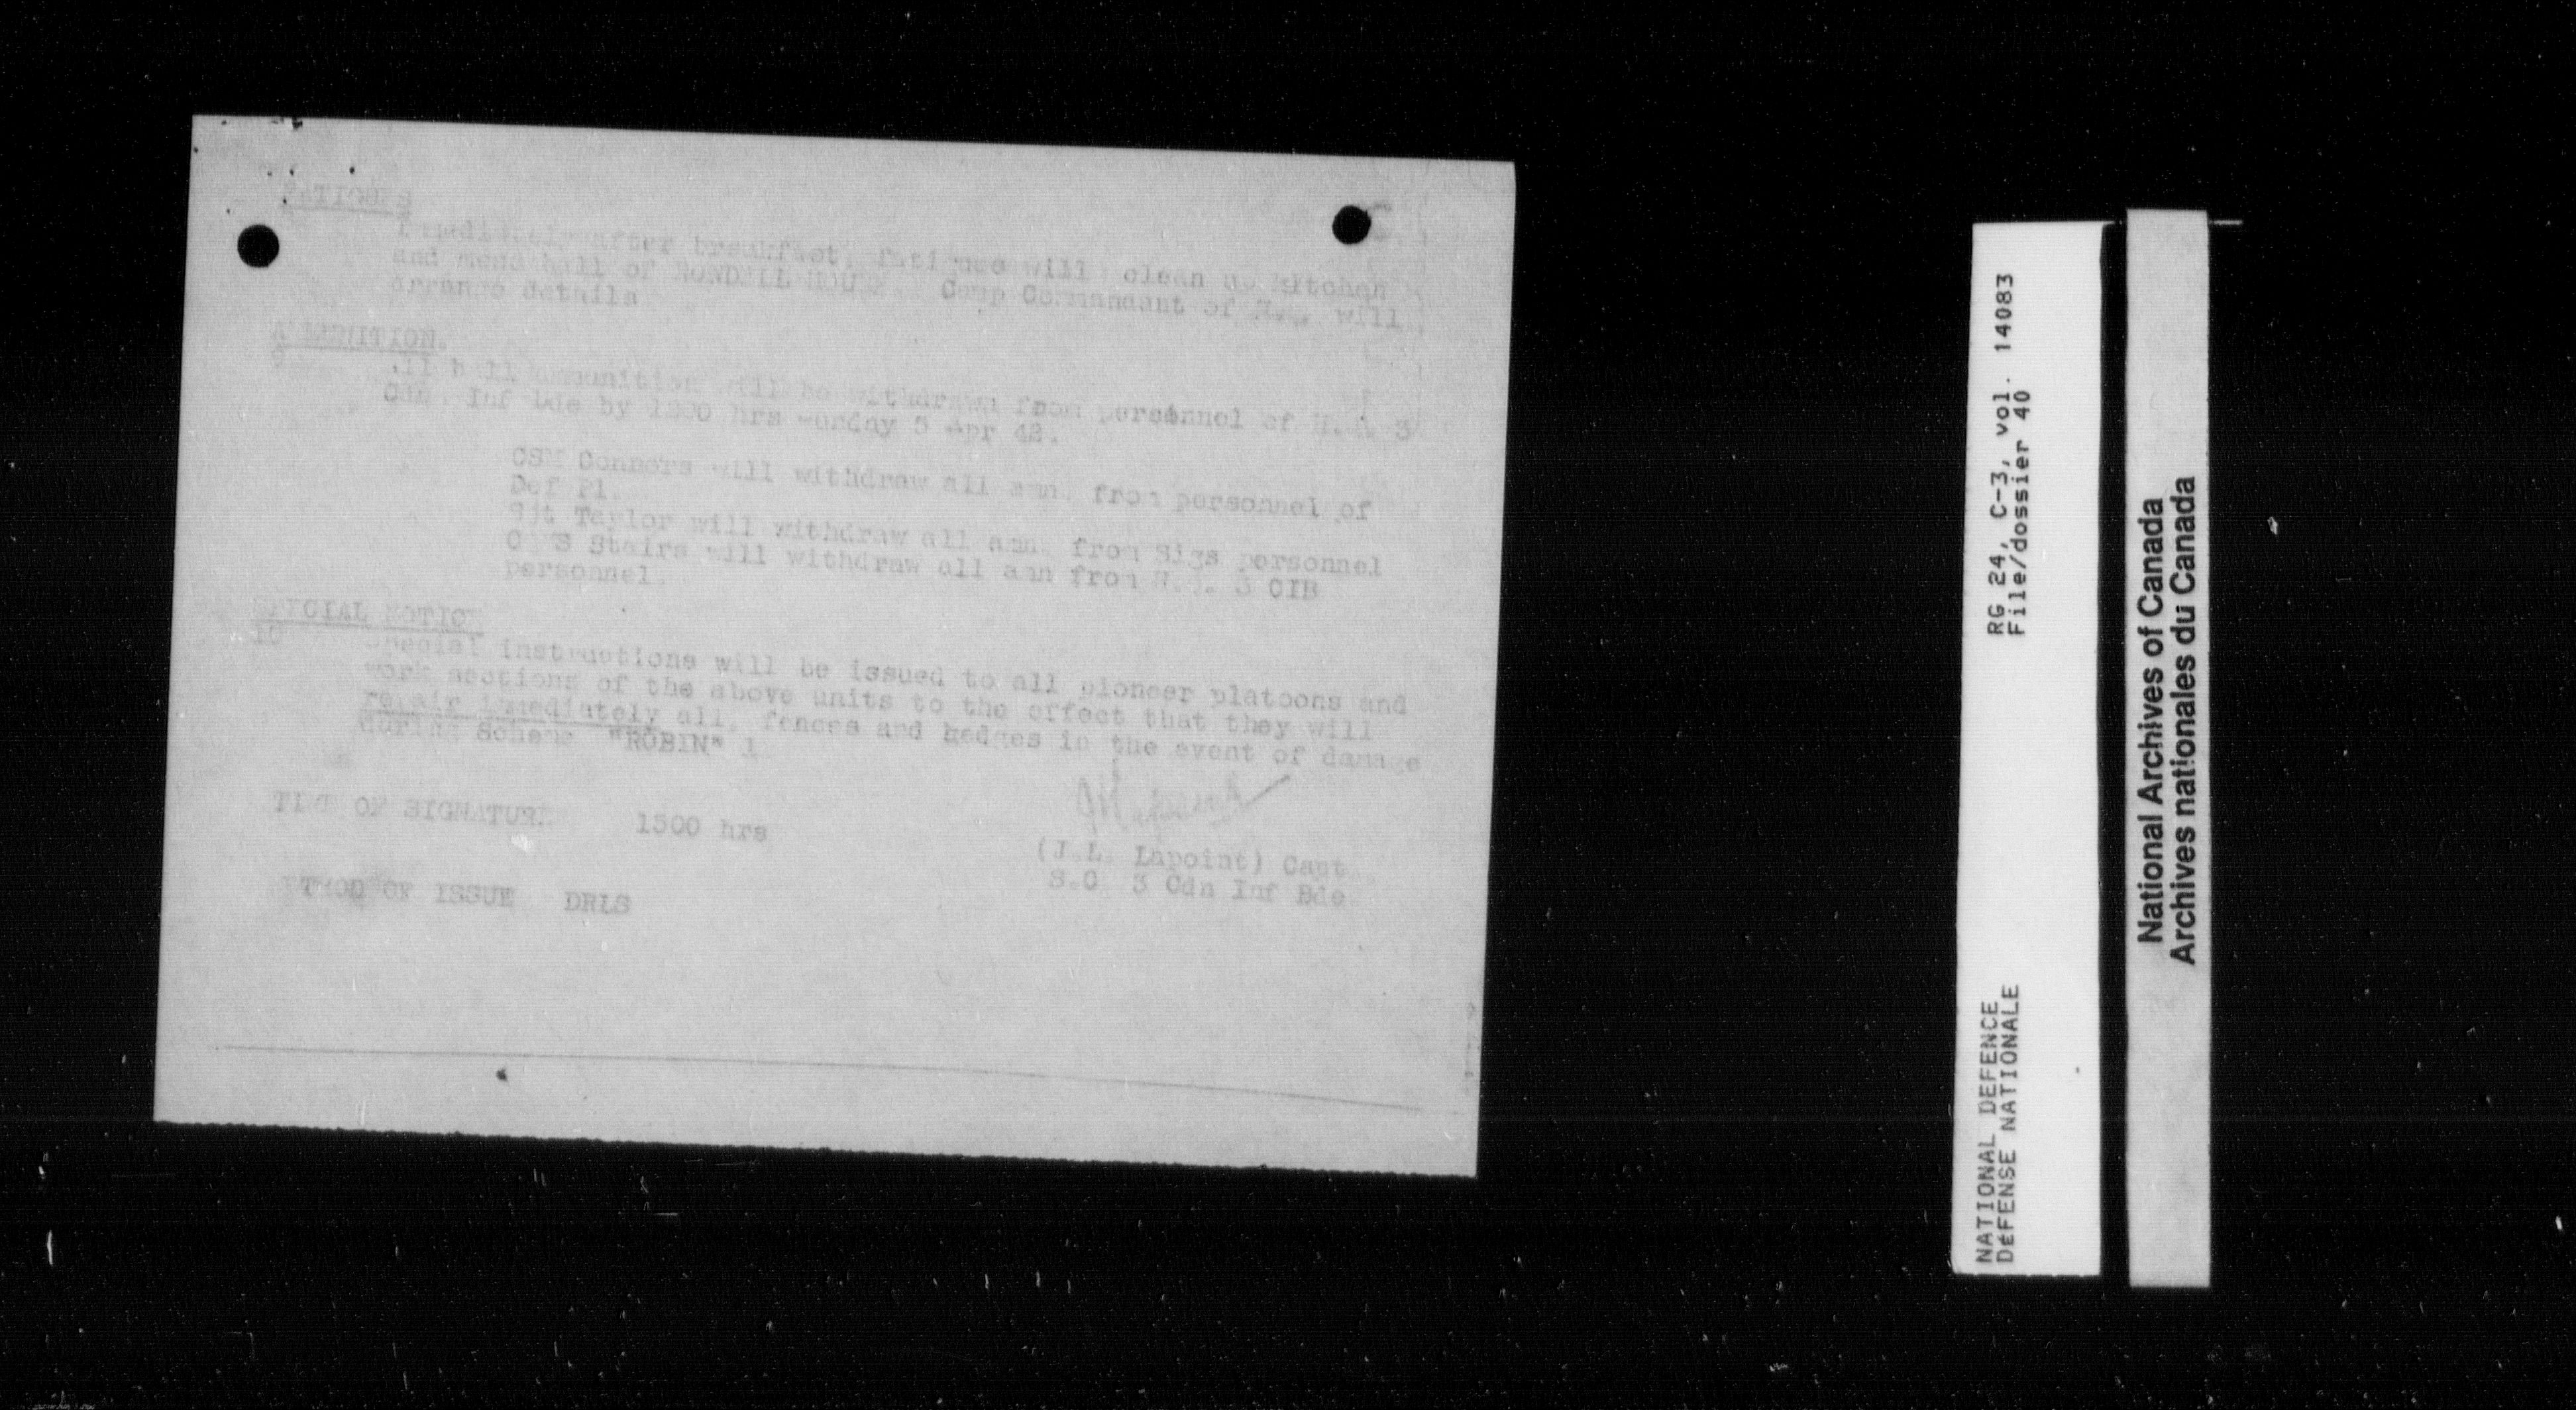 FATIGUES
Immediately after breakfast, fatigues will clean up kitchen
and mess hall of RONDELL HOUSE. Camp Commandant of H.Q. will
arrange details
AMMUNITION.
9 All ball ammunition will be withdrawn from personnel of H.Q. 3
Cdn. Inf Bde by 1200 hrs 5 Apr 42.
CSM Connors will withdraw all amn. from personnel of
Def Pl.
Sjt Taylor will withdraw all amn. from Sigs personnel
Stairs will withdraw all amn from H.Q. 3 CIB
personnel.
SPECIAL NOTICE
10 Special instructions will be issued to all pioneer platoons and
work sections of the above units to the effect that they will
repair immediately all fences and hedges in the event of damage
during Scheme "ROBIN" 1
TIME OF SIGNATURE 1500 hrs
(J.L. Lapoint) Capt
S.O. 3 Cdn Inf Bde
METHOD OF ISSUE DRLS
RG 24, C-3, vol. 14083
File/dossier 40
NATIONAL DEFENCE
DÉFENSE NATIONALE
National Archives of Canada
Archives nationales du Canada